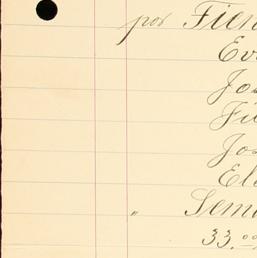 por Fien
Ev
Jos
Fi
Jos
El
" Sem
33.00